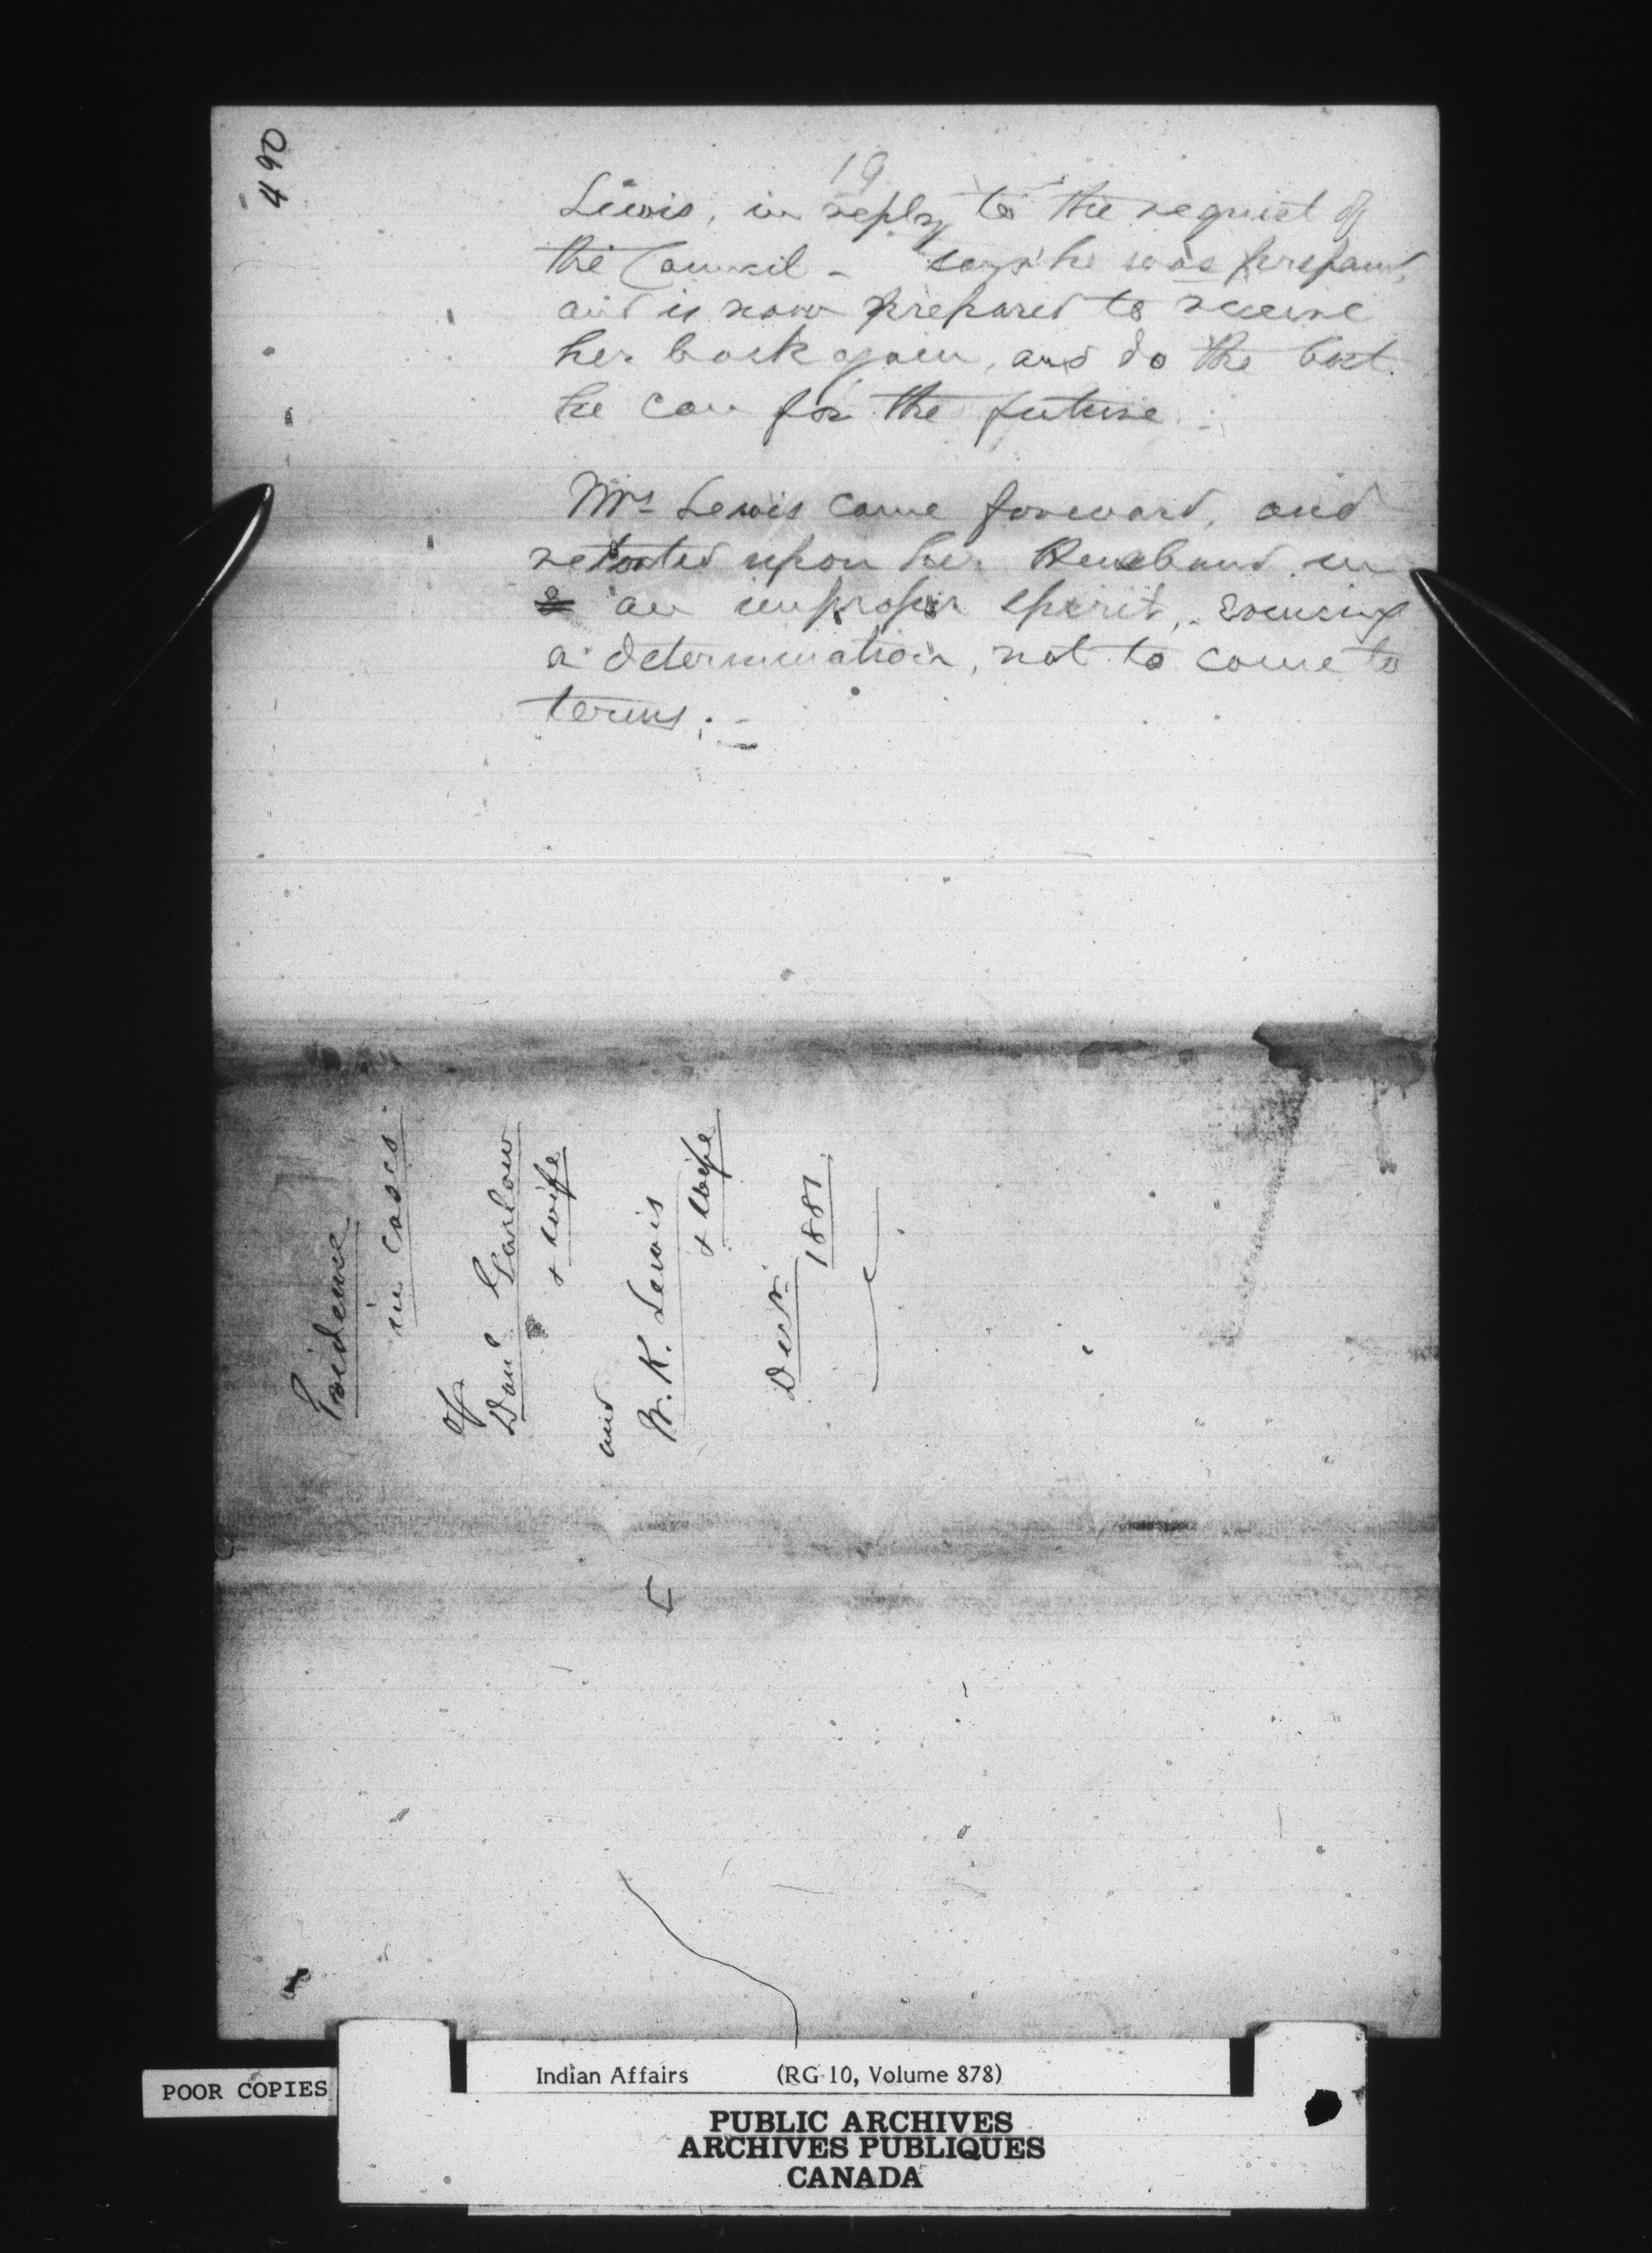 490
19
Lewis, in reply to the request of
the Council - says he was prepared,
and is now prepared to receive
her back again, and do the best
he can for the future.
Mrs Lewis came forward, and
retorted upon her Husband in
an improper spirit, - evincing
a determination, not to come to
terms. -
Evidence
in cases
of
Danl Garlow
+ wife
and
W. K. Lewis
+ wife
Decr
1881
POOR COPIES
Indian Affairs (RG 10, Volume 878)
PUBLIC ARCHIVES
ARCHIVES PUBLIQUES
CANADA